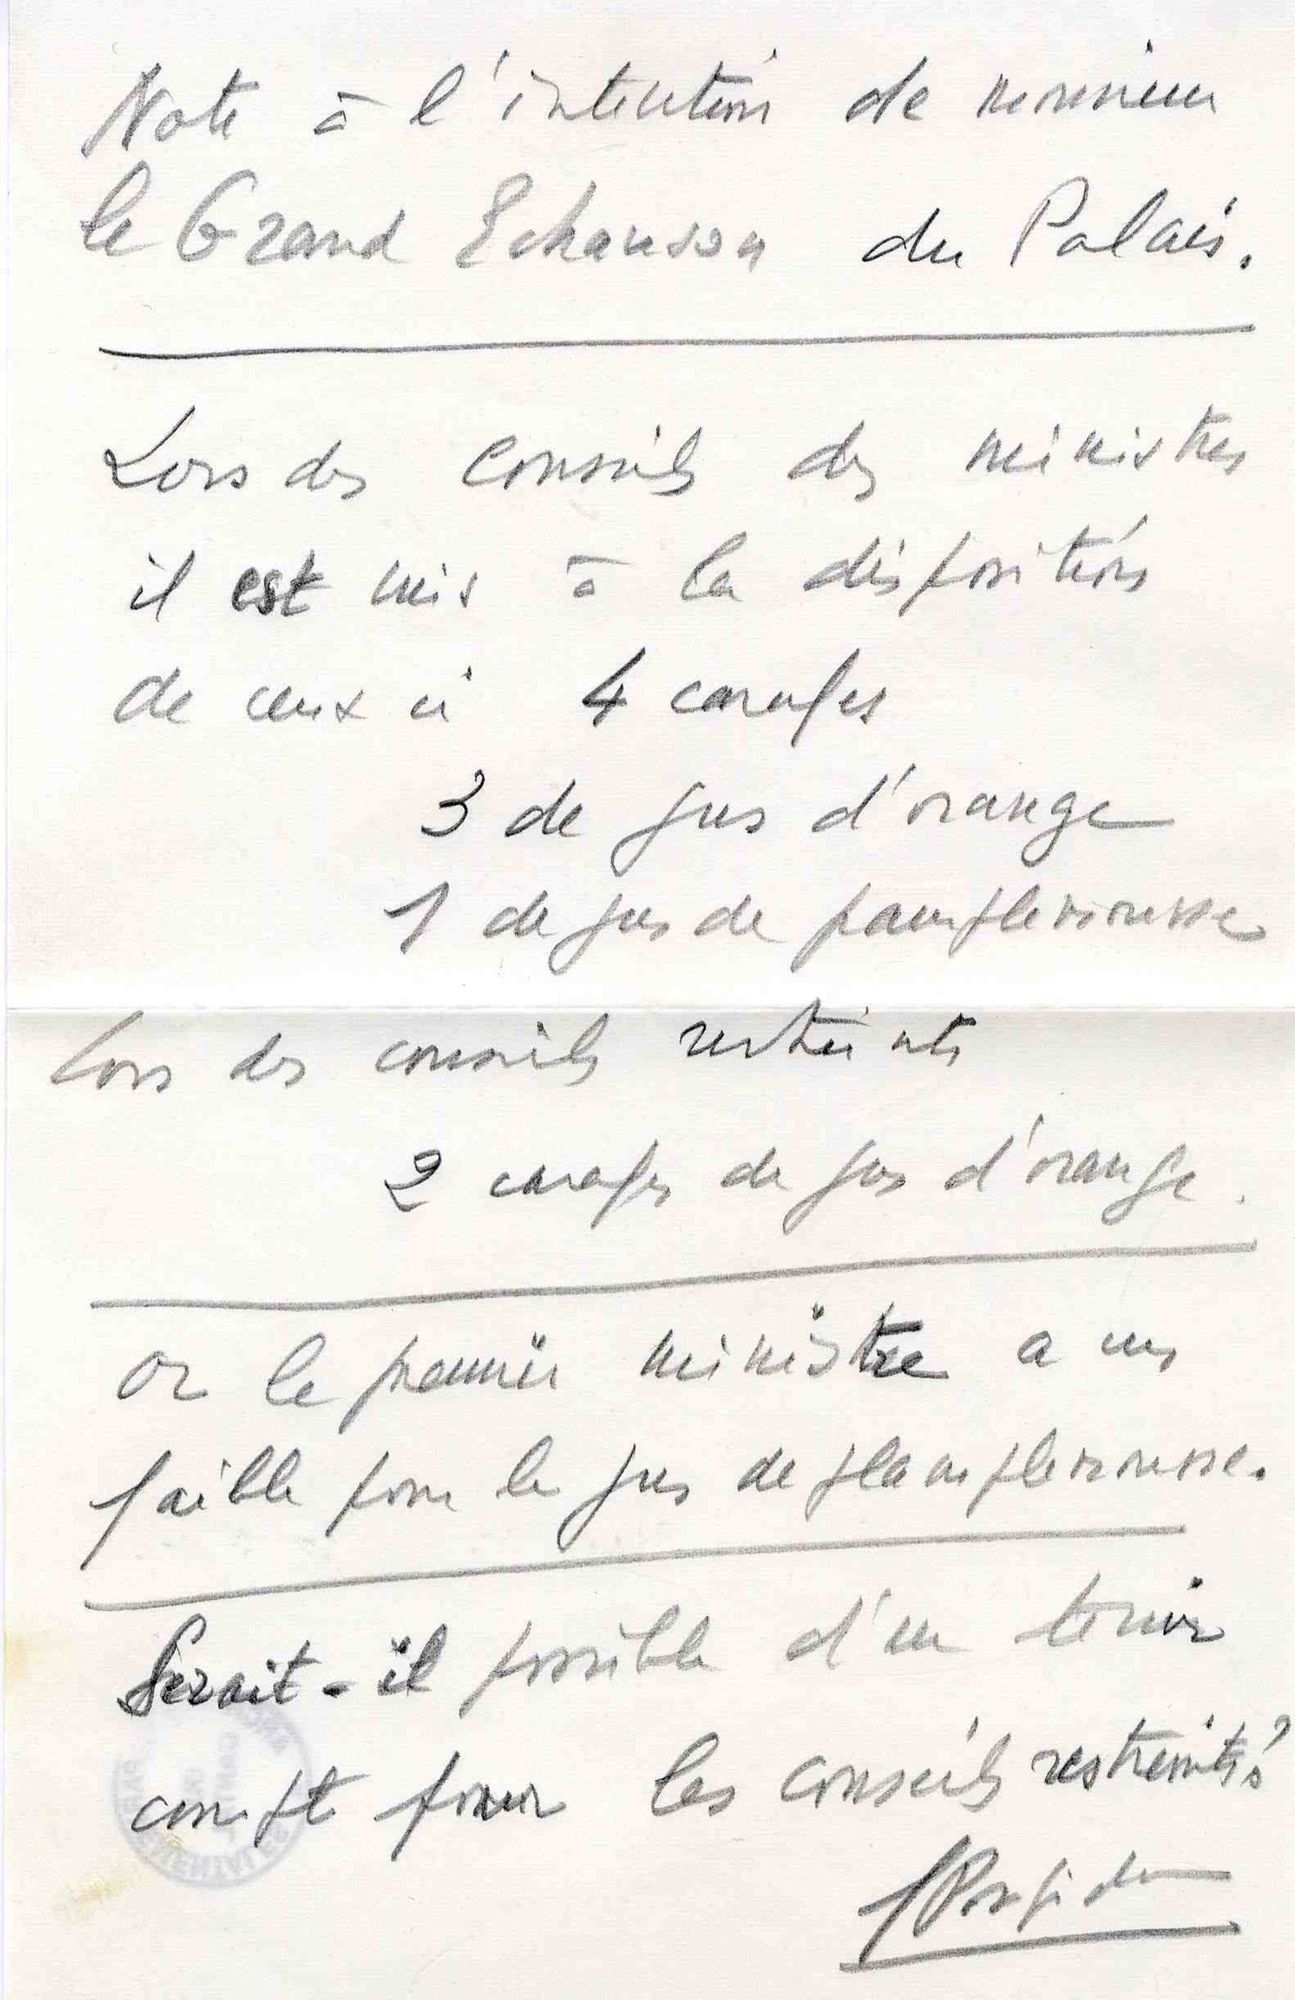 Note à l'intention de monsieur
le Grand Echanson du Palais.
Lors des conseils des ministres
il est mis à la disposition
de ceux ci 4 carafes
3 de jus d'orange
1 de jus de pamplemousse
Lors des conseils restreints
2 carafes de jus d'orange.
or le premier ministre a un
faible pour le jus de plamplemousse.
Serait-il possible d'en tenir
compte pour les conseils restreints?